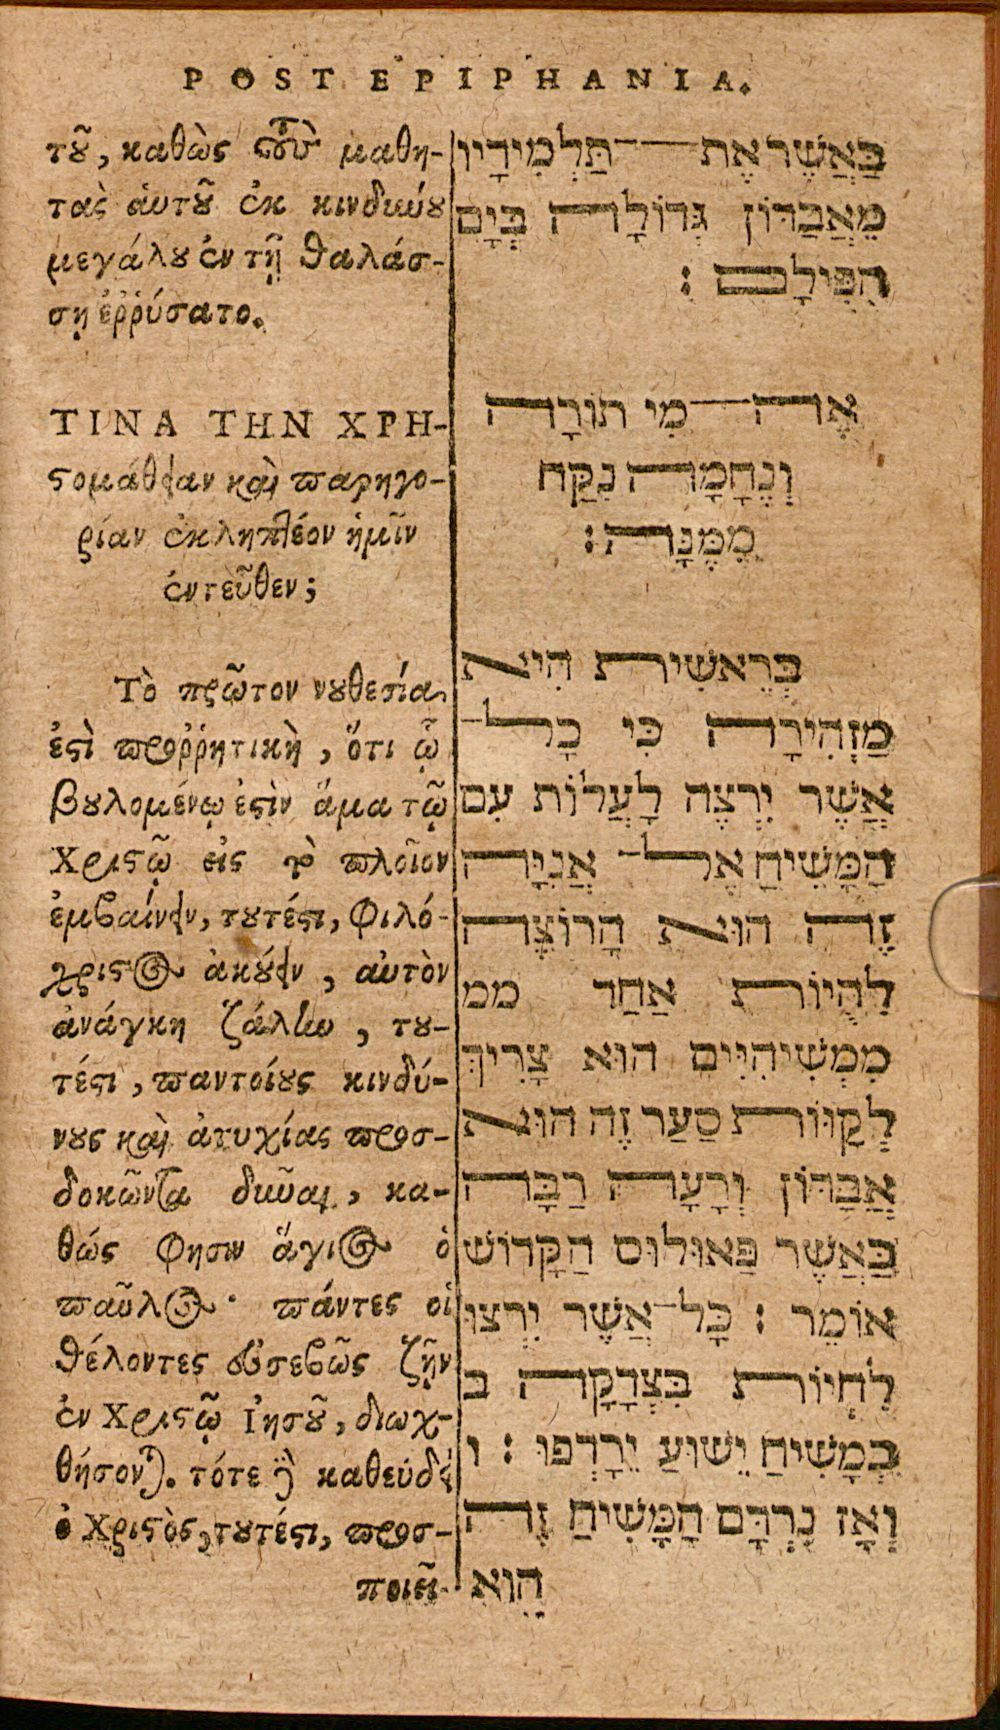 POST EPIPHANIA.
τοῦ, καθὼς τοὺς μαθη-
τὰς ἀυτοῦ ἐκ κινδύνου
μεγάλου ἐν τῇ θαλάσ-
σῃ ἐῤῥύσατο.
ΤΙΝΑ ΤΗΝ ΧΡΗ-
στομάθειαν καὶ παρηγο-
ρίαν ἐκληπτέον ἡμῖν
ἐντεῦθεν;
Τὸ πρῶτον νουθεσία
ἐστὶ προῤῥητικὴ, ὅτι ᾧ
βουλομένῳ ἐστὶν ἅμα τῷ
Χριστῷ εἰς τὸ πλοῖον
ἐμβαίνειν, τουτέστι, φιλό-
χριστος ἀκούειν, αὐτὸν
ἀνάγκη ζάλην, του-
τέστι, παντοίους κινδύ-
νους καὶ ἀτυχίας προσ-
δοκῶντα δεῦναι, κα-
θώς φησιν ἅγιος ὁ
παῦλος· πάντες οἱ
θέλοντες εὐσεβῶς ζῇν
ἐν Χριστῷ Ἰησοῦ, διωχ-
θήσονται. τότε γὰρ καθεύδει
ὁ Χριστὸς, τουτέστι, προσ-
ποιεῖ-
בַּאֲשֶׁר אֶת־־תַּלְמִידָיו
מֵאֲבַדּוֹן גְּדוֹלָה בְּיָם
הִפִּילָם :
אֶה־מִי תוֹרָה
וְנֶחָמָה נִקַּח
מִמֶּנָּה :
בְּרֵאשִׁית הִיא
מַזְהִירָה כִּי כָל־
אֲשֶׁר יִרְצֶה לָעֲלוֹת עִם
הַמָּשִׁיחַ אֶל־ אֳנִיָּה
זֶה הוּא הָרוֹצֶה
לִהְיוֹת אַחַד ממ
מִמְּשִׁיחִיִּים הוּא צָרִיךְ
לְקַוּוֹת סַעַר זֶה הוּא
אֲבַדּוֹן וְרָעָה רַבָּה
בַּאֲשֶׁר פַּאוּלוּס הַקָּדוֹשׁ
אוֹמֵר : כָּל־אֲשֶׁר יִרְצוּ
לִחְיוֹת בִּצְדָקָה ב
בְּמָשִׁיחַ יֵשׁוּעַ יֵרָדְפוּ : ו
וְאָז נִרְדָּם הַמָּשִׁיחַ זֶה
הוּא